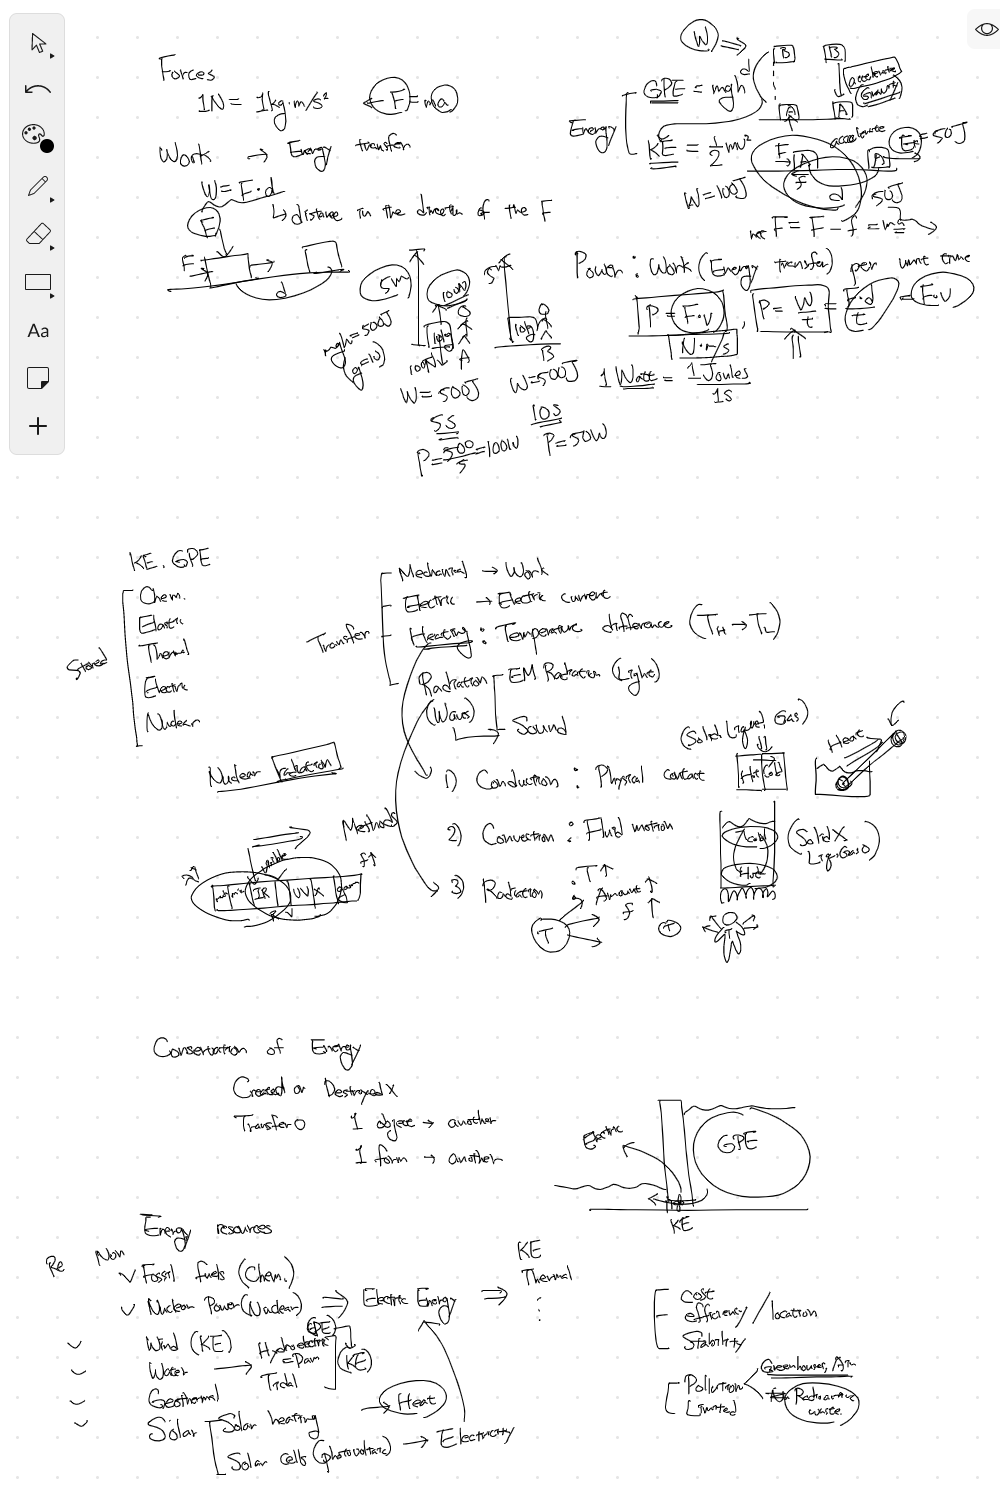 Aa
Forces
1N = 1kg·m/s² ← F = ma
Work → Energy transfer
W = F·d
↳ distance in the direction of the F
F
F
d
W ⇒
Energy
GPE = mgh
KE = ½mv²
d
B
B
A
A
accelerate
Gravity
accelerate
F
A
f
d
A
E = 50J
W = 100J
50J
net F = F - f = ma
Power : Work (Energy transfer) per unit time
P = F·v , P = W/t = F·d/t = F·v
N·m/s
1 Watt = 1 Joules/1s
5m
100N
10kg
100N
A
mgh = 500J
(g=10)
5m
10kg
B
W = 500J
W = 500J
5s
10s
P = 500/5 = 100W
P = 50W
KE. GPE
Stored
Chem.
Elastic
Thermal
Electric
Nuclear
Nuclear radiation
Transfer
Mechanical → Work
Electric → Electric current
Heating : Temperature difference (TH → TL)
Radiation
(Waves)
EM Radiation (Light)
Sound
Methods
1) Conduction : Physical contact
(Solid Liquid Gas)
Hot Cold
Heat
2) Convection : Fluid motion
Cold
Hot
(Solid X
Liq,Gas O)
3) Radiation : T↑
Amount ↑
f ↑
T
T
T
λ↑
visible
f↑
IR
UV
X
gam
R V
Conservation of Energy
Created or Destroyed X
Transfer O 1 object → another
1 form → another
Electric
GPE
KE
Energy resources
Re Non
✓ Fossil fuels (Chem.)
✓ Nuclear Power (Nuclear) ⇒ Electric Energy ⇒
KE
Thermal
⋮
✓ Wind (KE)
✓ Water → Hydroelectric
= Dam
Tidal
GPE
(KE)
✓ Geothermal
✓ Solar
Solar heating → Heat
Solar cells (photovoltaic) → Electricity
cost
efficiency / location
Stability
Pollution
Limited
Greenhouses, Air
Radioactive
waste